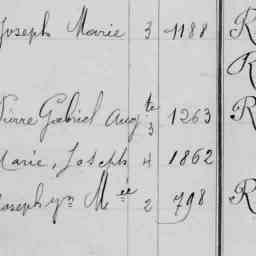 Joseph Marie 3 1188 R
R
Pierre Gabriel Aug^te 3 1263 R
Marie, Joseph 4 1862
Joseph Y^n M^ee 2 798 R